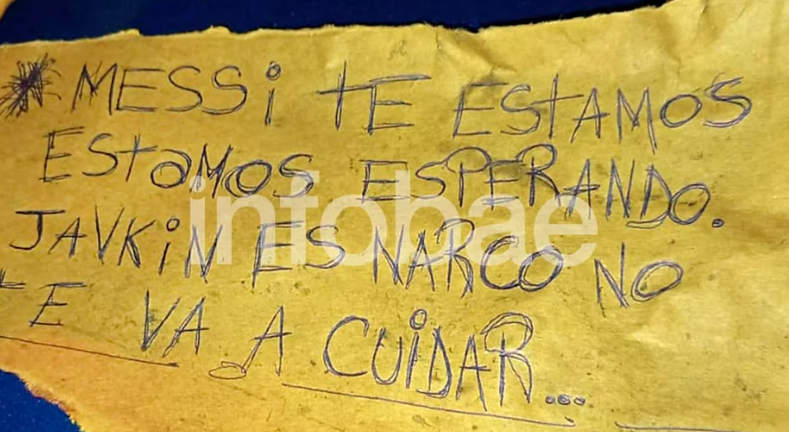 MESSi tE EStAMOS
EStaMOS ESPERANDO.
JAVKiN ES NARCO NO
tE VA A CUiDAR...
infobae